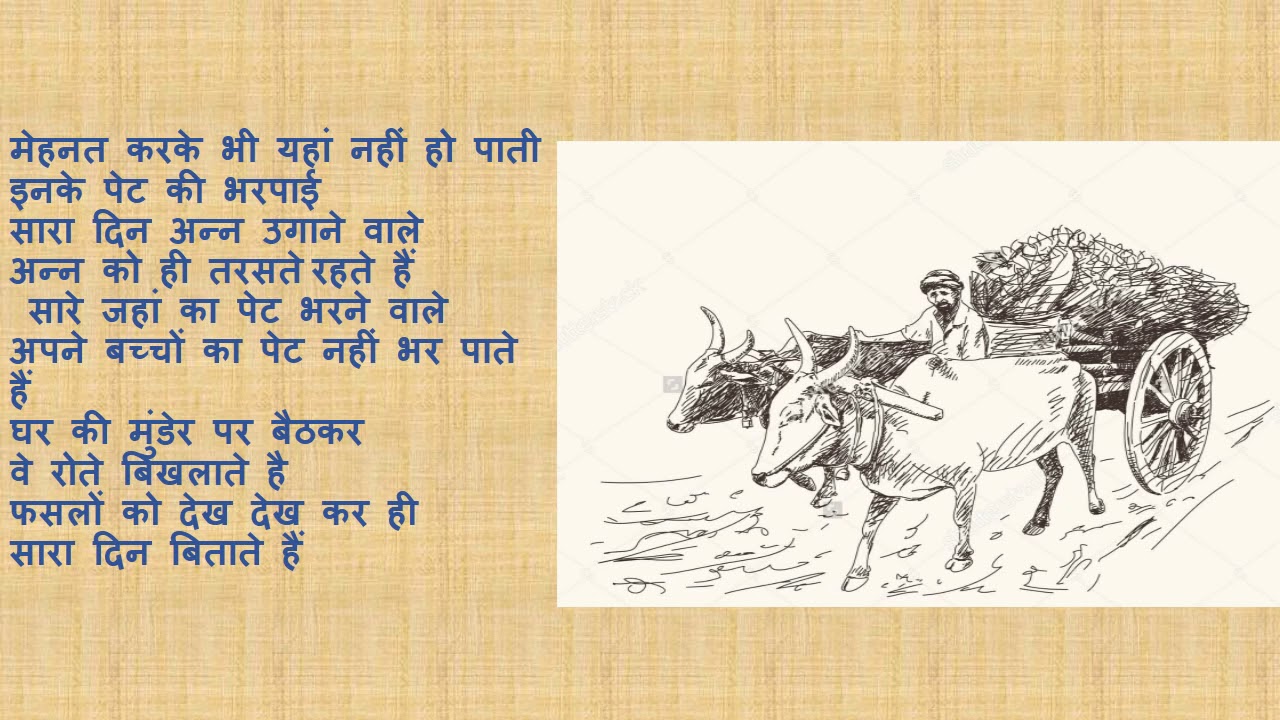 मेहनत करके भी यहां नहीं हो पाती
इनके पेट की भरपाई
सारा दिन अन्न उगाने वाले
अन्न को ही तरसते रहते हैं
सारे जहां का पेट भरने वाले
अपने बच्चों का पेट नहीं भर पाते
हैं
घर की मुंडेर पर बैठकर
वे रोते बिखलाते है
फसलों को देख देख कर ही
सारा दिन बिताते हैं